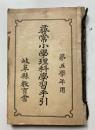 第五學年用
尋常小學理科學習手引
岐阜縣教育會